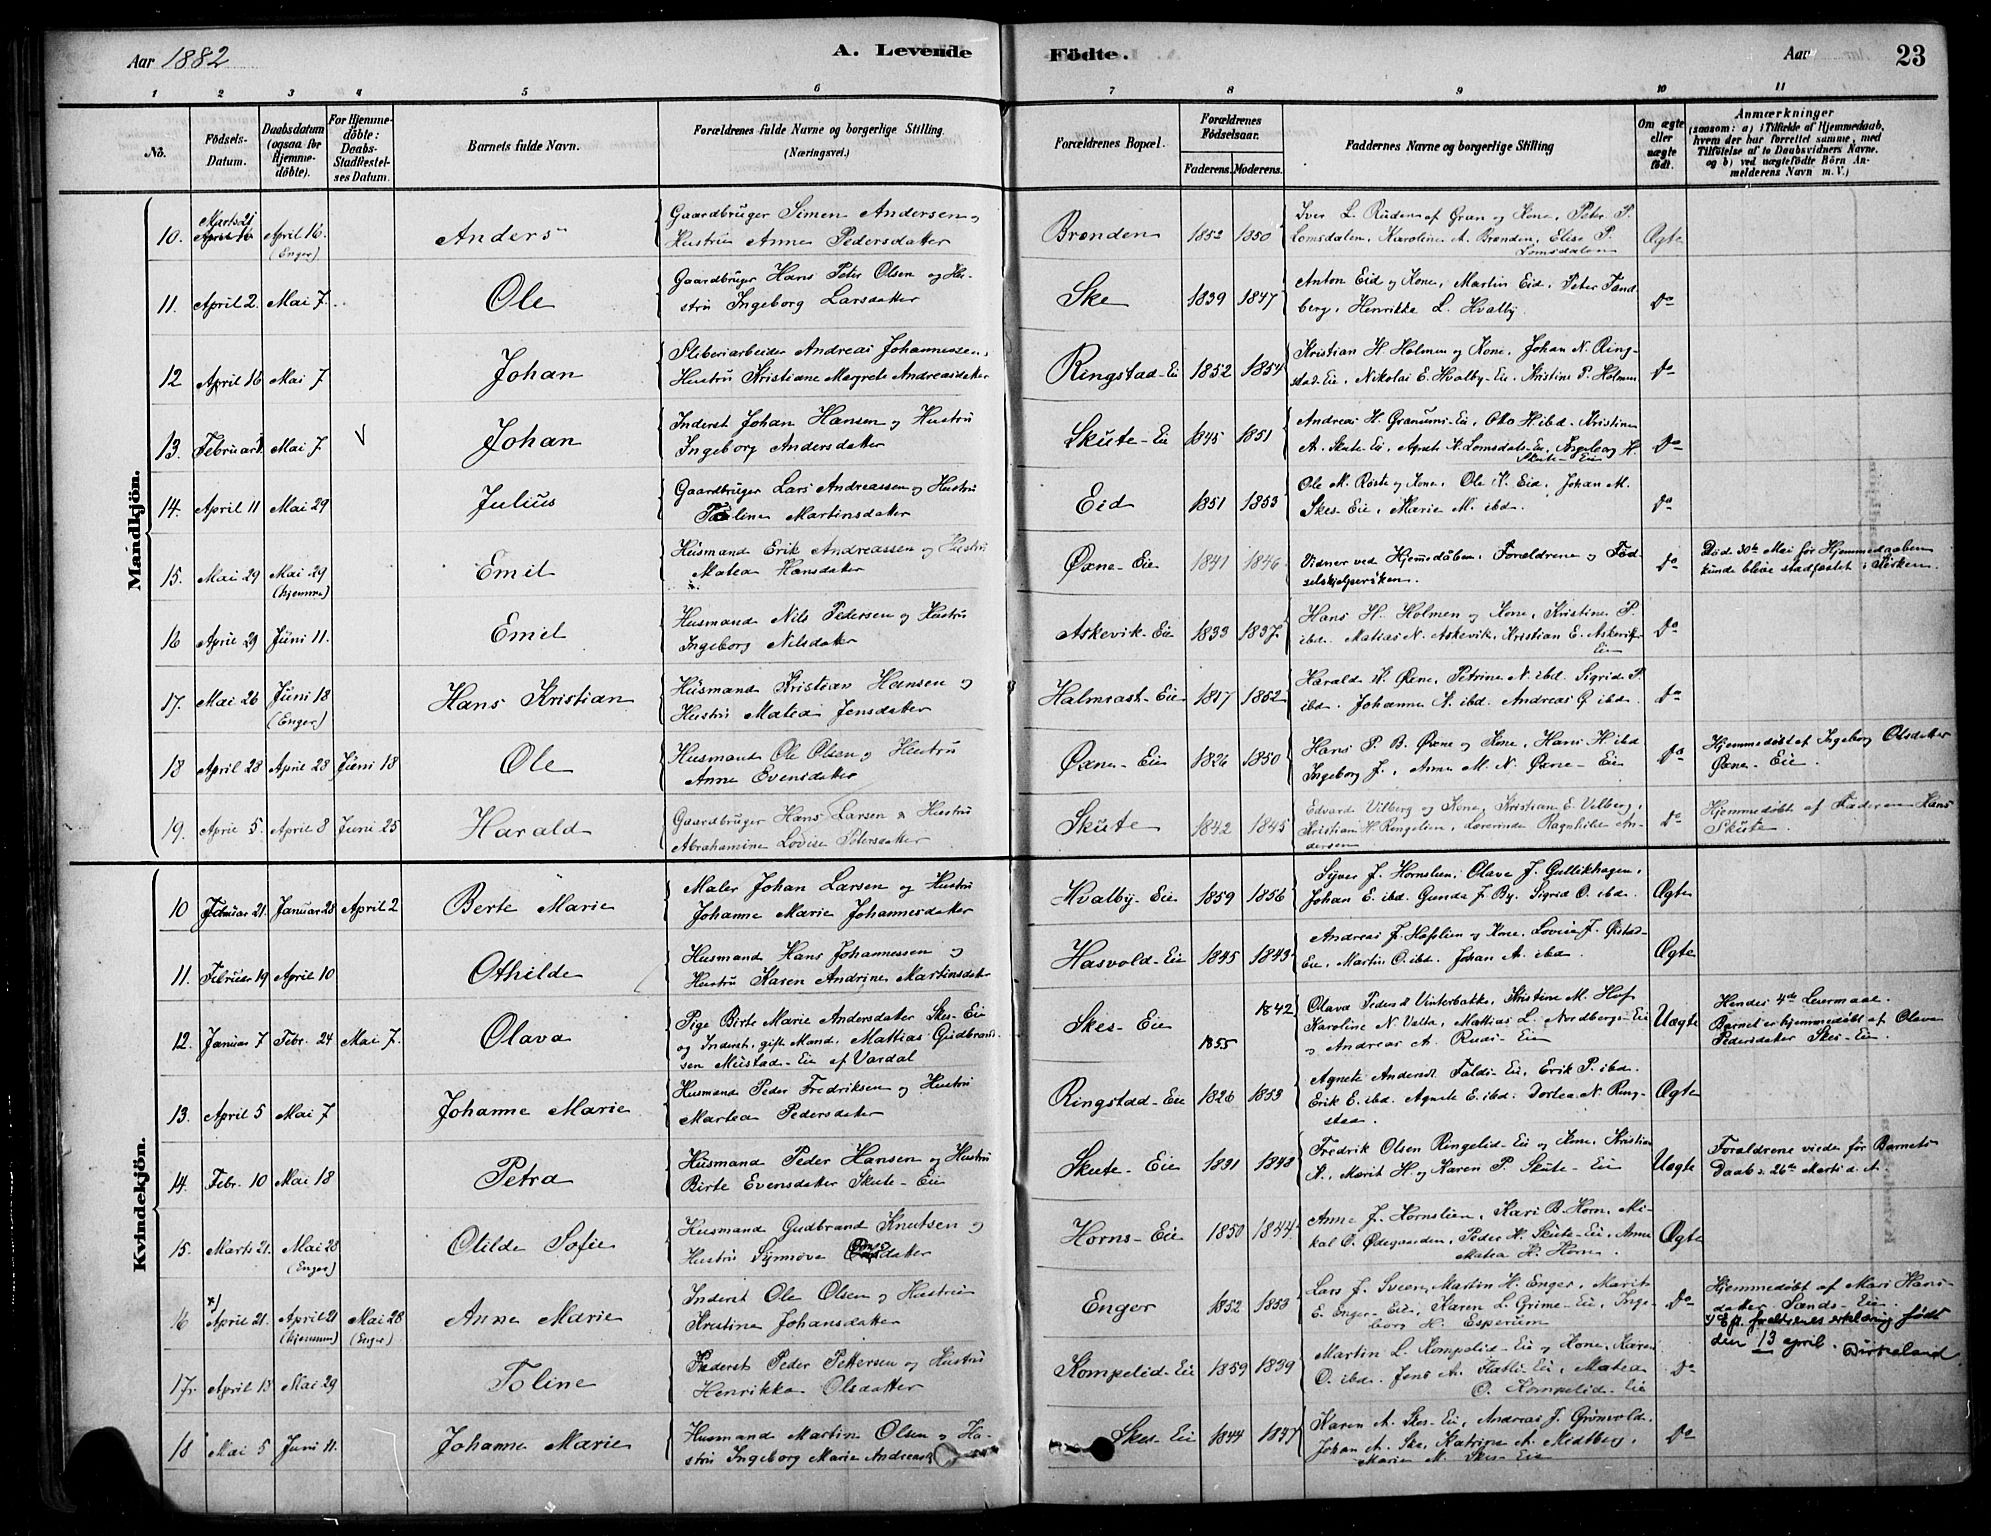 Aar 1882
A. Levende Födte.
Aar
23
1 2 3 4 5 6 7 8 9 10 11
No.
Födsels-Datum.
Daabsdatum (ogsaa for Hjemmedöbte).
For Hjemmedöbte: Daabs-Stadfæstelses Datum.
Barnets fulde Navn.
Forældrenes fulde Navne og borgerlige Stilling.
(Næringsvei.)
Forældrenes Bopæl.
Forældrenes Födselsaar.
Faderens. Moderens.
Faddernes Navne og borgerlige Stilling
Om ægte eller uægte födt.
Anmærkninger
(saasom: a) i Tilfælde af Hjemmedaab, hvem der har forrettet samme, med Tilföielse af to Daabsvidners Navne, og b) ved uægtefödte Börn Anmelderens Navn m. V.)
Mandkjön.
10. Marts 21 April 16. (Enger) Anders Gaardbruger Simen Andersen og
Hustru Anne Pedersdatter Brænden 1852 1850 Iver L. Ruden af Gran og Kone, Peter P.
Lomsdalen, Karoline A. Brænden, Elise P. Lomsdalen Ægte
11. April 2. Mai 7. Ole Gaardbruger Hans Peter Olsen og Hu-
stru Ingeborg Larsdatter Ske 1839 1847 Anton Eid og Kone, Martin Eid, Peter Sand-
berg, Henrikke L. Hvalby. Do
12 April 16 Mai 7 Johan Sliberiarbeider Andreas Johannessen,
Hustru Kristiane Margrete Andreasdatter Ringstad-Ei 1852 1854 Kristian H Holmen og Kone, Johan N. Ring-
stad-Eie, Nikolai E. Hvalby-Eie, Kristine P. Holmen Do
13. Februar Mai 7. V Johan Inderst Johan Hansen og Hustru
Ingeborg Andersdatter Skute-Eie 1845 1851 Andreas H. Granums-Eie, Otto H ibd. Kristine
A. Skute-Eie, N. Lomsdals-Eie, Ingeborg H. Skute-Eie Do
14. April 11 Mai 29 Julius Gaardbruger Lars Andreassen og Hustru
Martinsdatter Eid 1851 1853 Ole M. Röste og Kone, Ole K. Eid, Johan M.
Skes-Eie, Marie M. ibd. Do
15. Mai 29 Mai 29 (hjemme) Emil Husmand Erik Andreassen og Hustru
Matea Hansdatter Øxne-Eie 1841 1846 Vidner ved Hjemedåben, Forældrene og Föd-
selshjælpersken. Do Död 30te Mai för Hjemmedaaben
kunde blive stadfæstet i Kirken.
16 April 29 Juni 11. Emil Husmand Nils Pedersen og Hustru
Ingeborg Nilsdatter Askevik-Eie 1833 1837. Hans H. Holmen og Kone, Kristine P.
ibd. Matias N. Askevik, Kristian E. Askevik Eie Do
17. Mai 26 Juni 18 (Enger) Hans Kristian Husmand Kristian Hansen og
Hustru Matea Jensdatter Halmrast-Eie 1852 Harald N. Øxne, Petrine N. ibd. Sigrid P.
ibd. Johanne N. ibd. Andreas G. ibd. Do
18 April 28 April 28 Juni 18 Ole Husmand Ole Olsen og Hustru
Anne Evensdatter Øxne-Eie 1836 1850 Hans P. B. Øxne og Kone, Hans H ibd
Ingeborg J., Anne M. N. Øxne-Eie Do Hjemmedöbt af Ingeborg Olsdatter
Øxne-Eie.
19. April 5. April 8 Juni 25 Harald Gaardbruger Hans Larsen & Hustru
Abrahamine Lovise Petersdatter Skute 1842 1845 Edvard Vilberg og Kone, Kristian E. Vilberg,
Kristian H. Ringelien, Lærerinde Ragnhilde An-
dersen Do Hjemmedöbt af Faderen Hans
Skute.
Kvindekjön.
10 Januar 21. Januar 28 April 2 Berte Marie Maler Johan Larsen og Hustru
Johanne Marie Johannesdatter Hvalby-Eie 1859 1856 J. Hornslien, Olava J. Gullikhagen,
Johan E. ibd. Gunda J. By. Sigrid O. ibd. Ægte
11. Februar 19 April 10 Othilde Husmand Hans Johannessen og
Hustru Karen Andrine Martinsdatter Hasvold-Eie 1845 1843 Andreas J. Haslien og Kone, Lovise J.
Eie, Martin O. ibd. Johan A. ibd. Ægte
12. Januar 7 Febr. 24 Mai 7. Olava Pige Birte Marie Andersdatter Skes-Eie
og Inderst, gift Mand, Mattias Gudbrand-
sen Mustad-Eie af Vardal Skes-Eie 1855 1842 Olava Pedersd Vinterbakke, Kristine M. Hof
Karoline N. Valta, Mattias L. Nordbergs-Eie
og Andreas A. Ruds-Eie Uægte Hendes 4de Leiermaal.
Barnet er hjemmedöbt af Olava
Pedersdatter Skes-Eie.
13. April 5 Mai 7 Johanne Marie Husmand Peder Fredriksen og Hustru
Martea Pedersdatter Ringstad-Eie 1826 1853 Agnete Andersd Falds-Eie, Erik P. ibd.
Erik E. ibd. Agnete E. ibd. Dortea N. Ring-
stad. Ægte
14. Febr. 10 Mai 18 Petra Husmand Peder Hansen og Hustru
Birte Evensdatter Skute-Eie Skute-Eie 1831 1848 Fredrik Olsen Ringelid-Eie og Kone, Kristian
N., Marit H. og Karen P. Skute-Eie Uægte Forældrene viede för Barnets
Daab d. 26de Marts d. A.
15. Marts 21. Mai 28 (Enger) Otilde Sofie Husmand Gudbrand Knutsen og
Hustru Synnöve datter Horns-Eie 1850 1844 Anne J. Hornslien, Kari B. Horn, Mi-
kal O. Ødegaarden, Peder H. Skute-Eie, Anne
Matea H. Horn. Ægte
16 x) April 21. April 21 (hjemme) Mai 28 (Enger) Anne Marie Inderst Ole Olsen og Hustru
Kristine Johansdatter Enger 1852 1853 Lars J. Sveen, Martin H. Enger, Marit
E. Enger-Eie, Karen L. Grime-Eie, Inge-
borg H. Esperum Do Hjemmedöbt af Mari Hans-
datter Sands-Eie.
x) Eft. forældrenes erklæring födt
den 13 april. Birkeland.
17. April 13 Mai 29 Toline Inderst Peder Pettersen og Hustru
Henrikka Olsdatter Kompelid-Eie 1859 1839 Martin L. Kompelid-Eie og Kone, Karen
O. ibd. Jens A. Flatli-Eie, Matea
O. Kompelid-Eie Do
18 Mai 5 Juni 11. Johanne Marie Husmand Martin Olsen og Hu-
stru Ingeborg Marie Andreasd Skes-Eie 1844 1847 Karen A. Skes-Eie, Andreas J. Grönvold.
Johan A. Ske, Katrine A. Midtberg,
Marie M. Skes-Eie Do